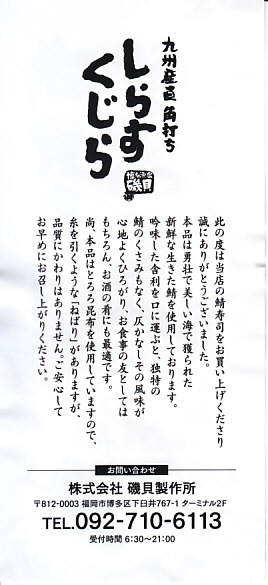 九州産直 角打ち
しらす
くじら
磯貝
此の度は当店の鯖寿司をお買い上げくださり
誠にありがとうございました。
本品は勇壮で美しい海で獲られた
新鮮な生きた鯖を使用しております。
吟味した舎利を口に運ぶと、独特の
鯖のくさみもなく、仄かなしその風味が
心地よくひろがり、お食事の友としては
もちろん、お酒の肴にも最適です。
尚、本品はとろろ昆布を使用していますので、
糸を引くような「ねばり」がありますが、
品質にかわりはありません。ご安心して
お早めにお召し上がりください。
お問い合わせ
株式会社 磯貝製作所
〒812-0003 福岡市博多区下臼井767-1 ターミナル2F
TEL.092-710-6113
受付時間 6:30〜21:00